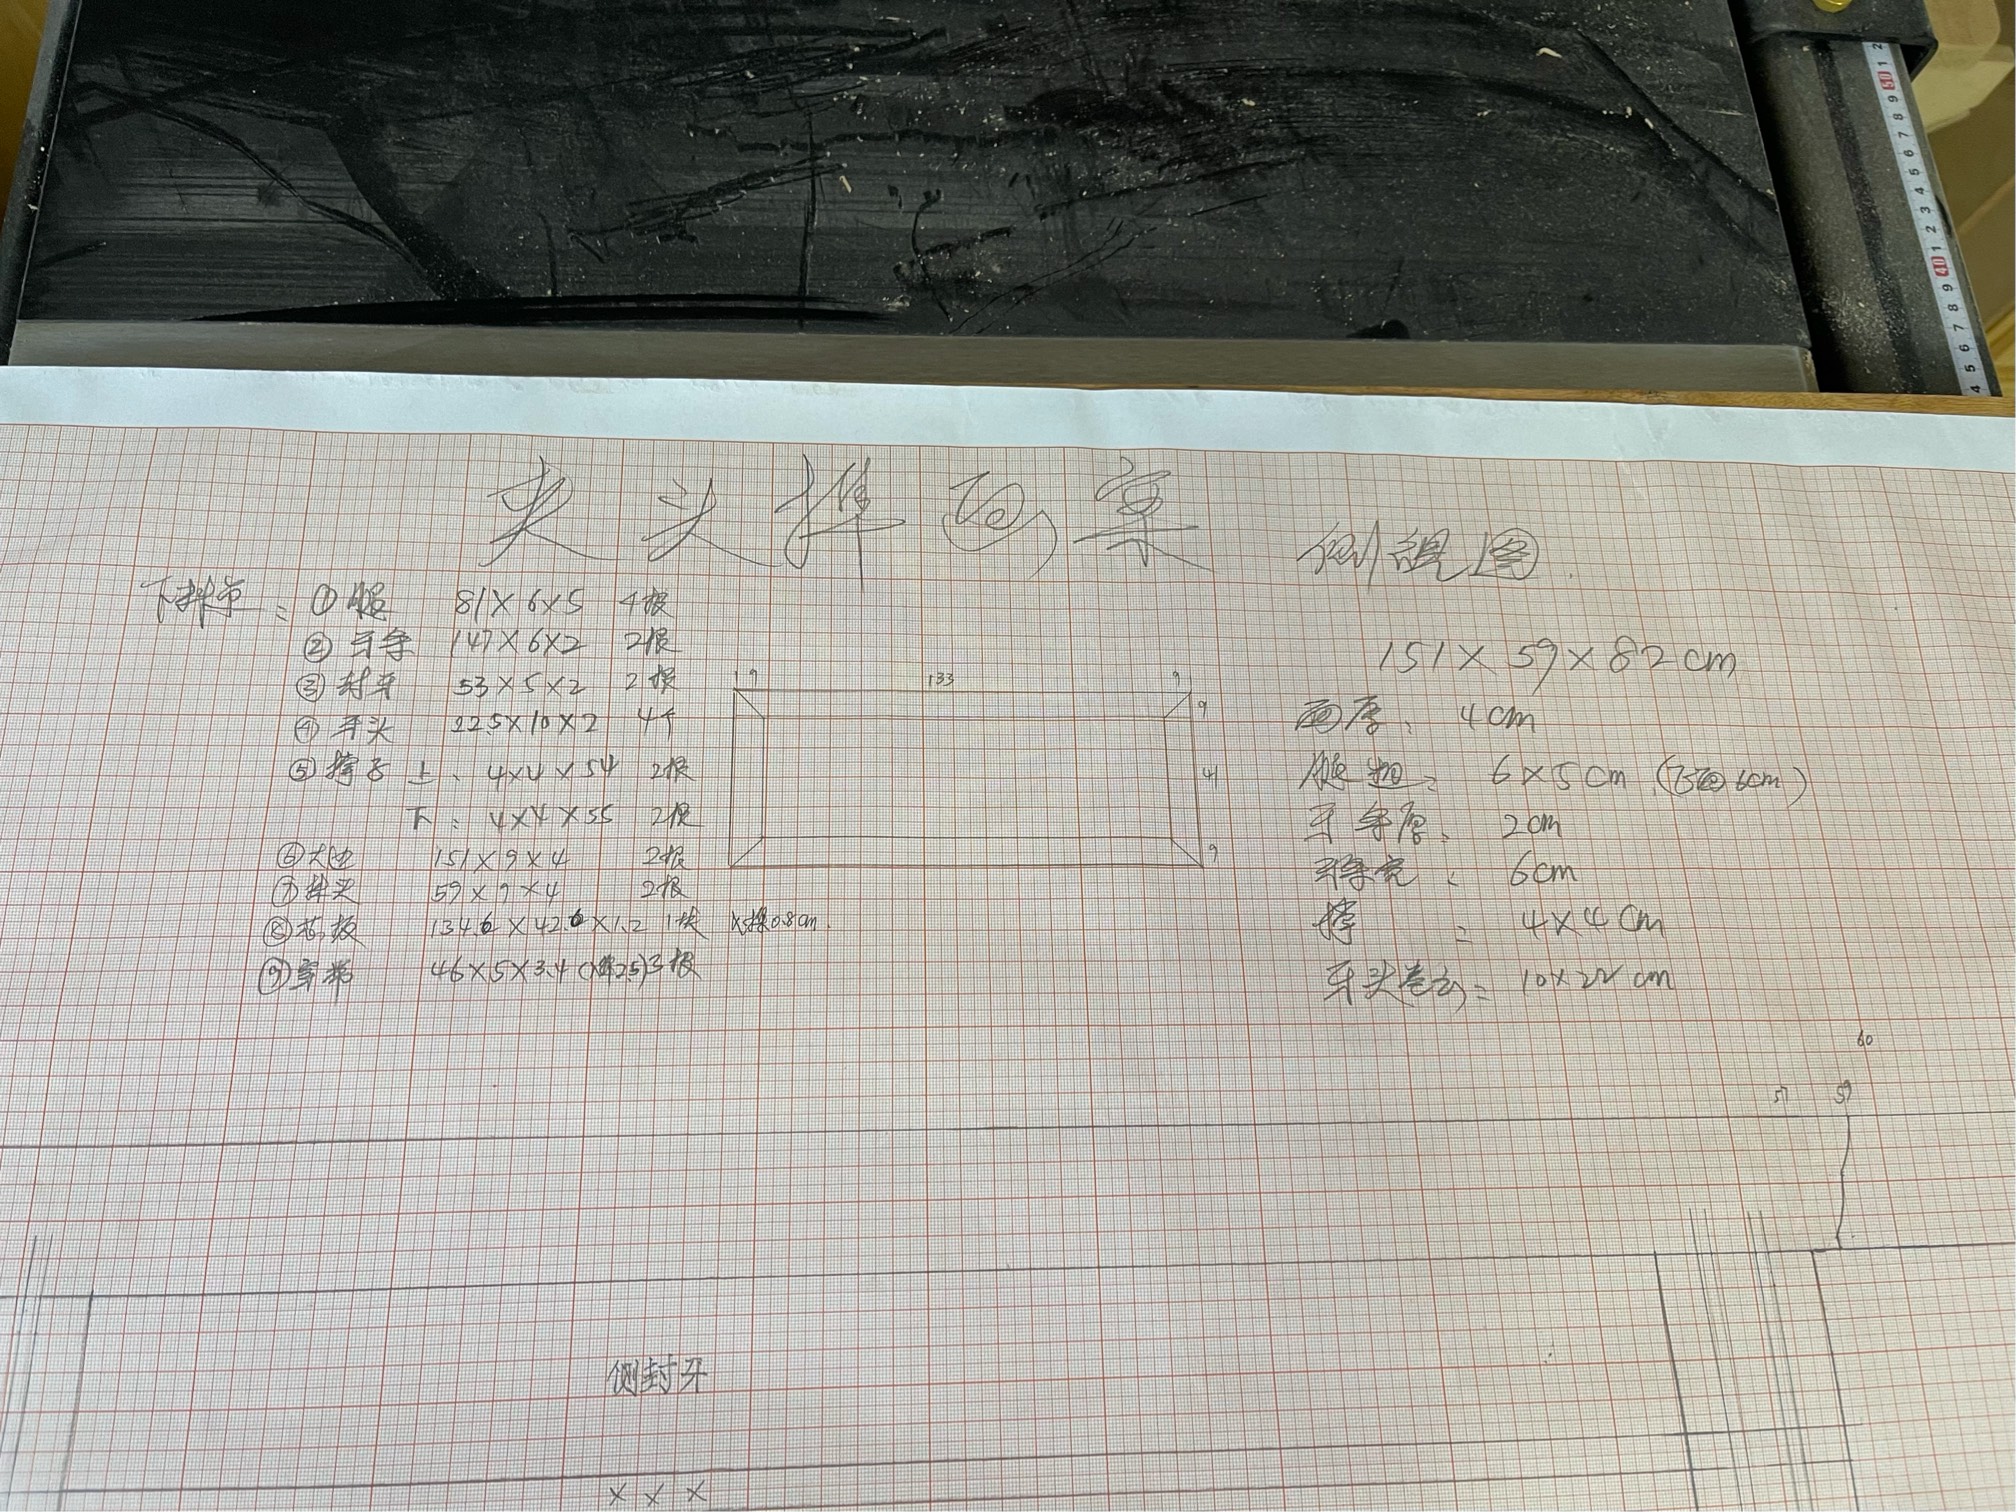 夹头榫画案
侧视图
下料单：①腿 81×6×5 4根
②牙条 147×6×2 2根
③封牙 53×5×2 2根
④牙头 22.5×10×2 4个
⑤撑子 上：4×4×54 2根
下：4×4×55 2根
⑥大边 151×9×4 2根
⑦抹头 59×9×4 2根
⑧芯板 134.6×42.6×1.2 1块 0.8cm
⑨穿带 46×5×3.4 3根
9 133 9
9
41
9
151×59×82cm
面厚：4cm
腿粗：6×5cm (正面6cm)
牙条厚：2cm
牙条宽：6cm
撑：4×4cm
牙头卷云：10×22cm
60
57 59
侧封牙
× × ×
2 1 50 9 8 7 6 5 4 3 2 1 40 9 8 7 6 5 4